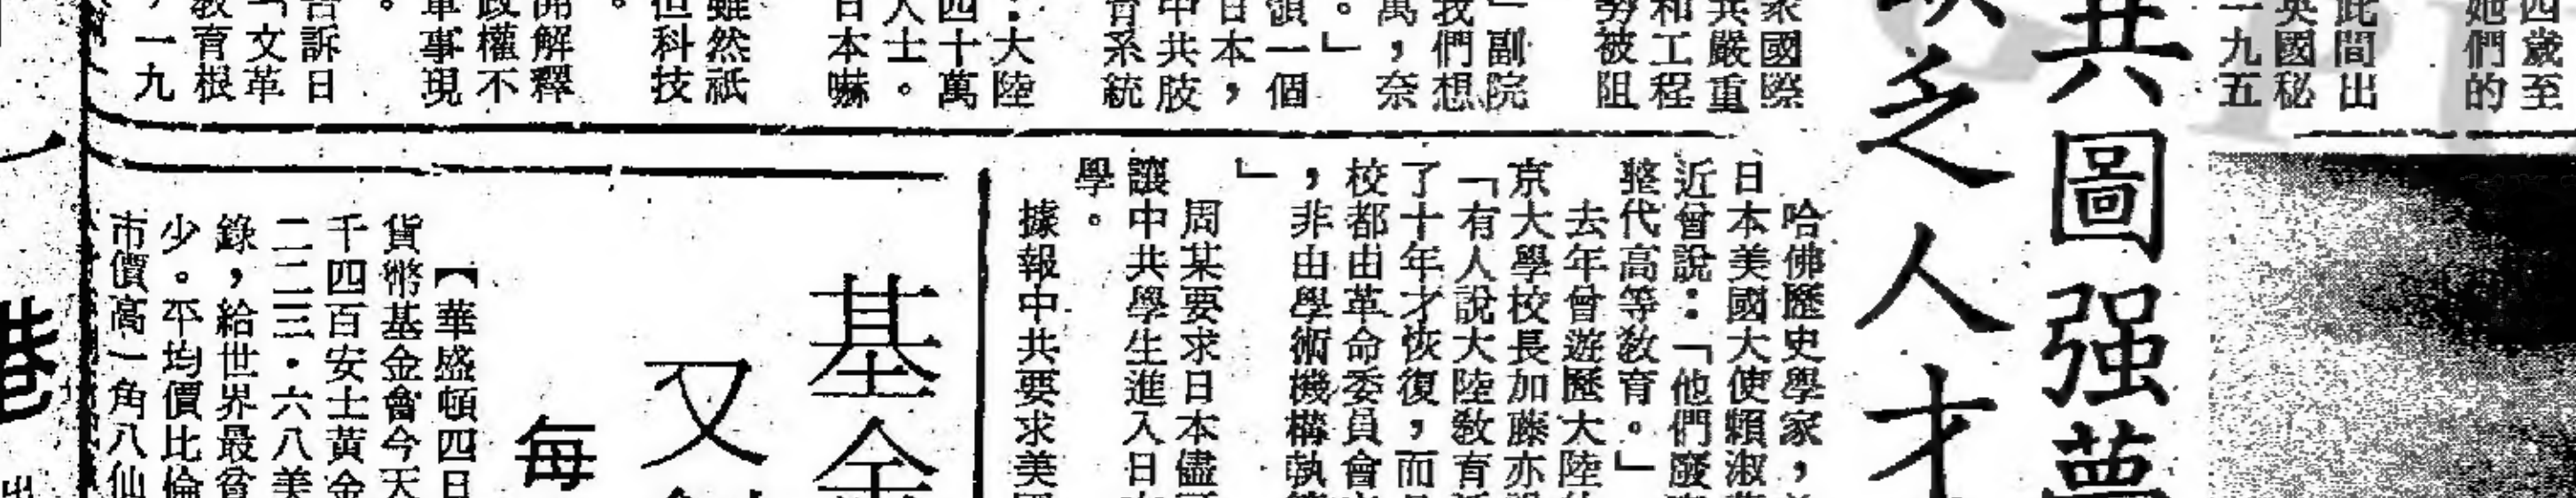 四歲至
她們的
此間出
英國秘
一九五
共圖强夢
乏人才
眾國際
共嚴重
和工程
勞被阻
」副院
我們想
萬，奈
。」
領一個
日本，
中共肢
育系統
：大陸
四十萬
人士。
日本嚇
雖然祇
但科技
。
開解釋
政權不
軍事現
。
告訴日
「文革
教育根
，一九
哈佛歷史學家，
日本美國大使賴淑
近曾說：「他們廢
整代高等敎育。」
去年曾遊歷大陸
京大學校長加藤亦
「有人說大陸敎育
了十年才恢復，而
校都由革命委員會
，非由學術機構執
」
周某要求日本儘
讓中共學生進入日
學。
據報中共要求美
基金
又
每
【華盛頓四日
貨幣基金會今天
千四百安士黃金
二二三．六八美
錄，給世界最貧
少。平均價比倫
市價高一角八仙
港
出